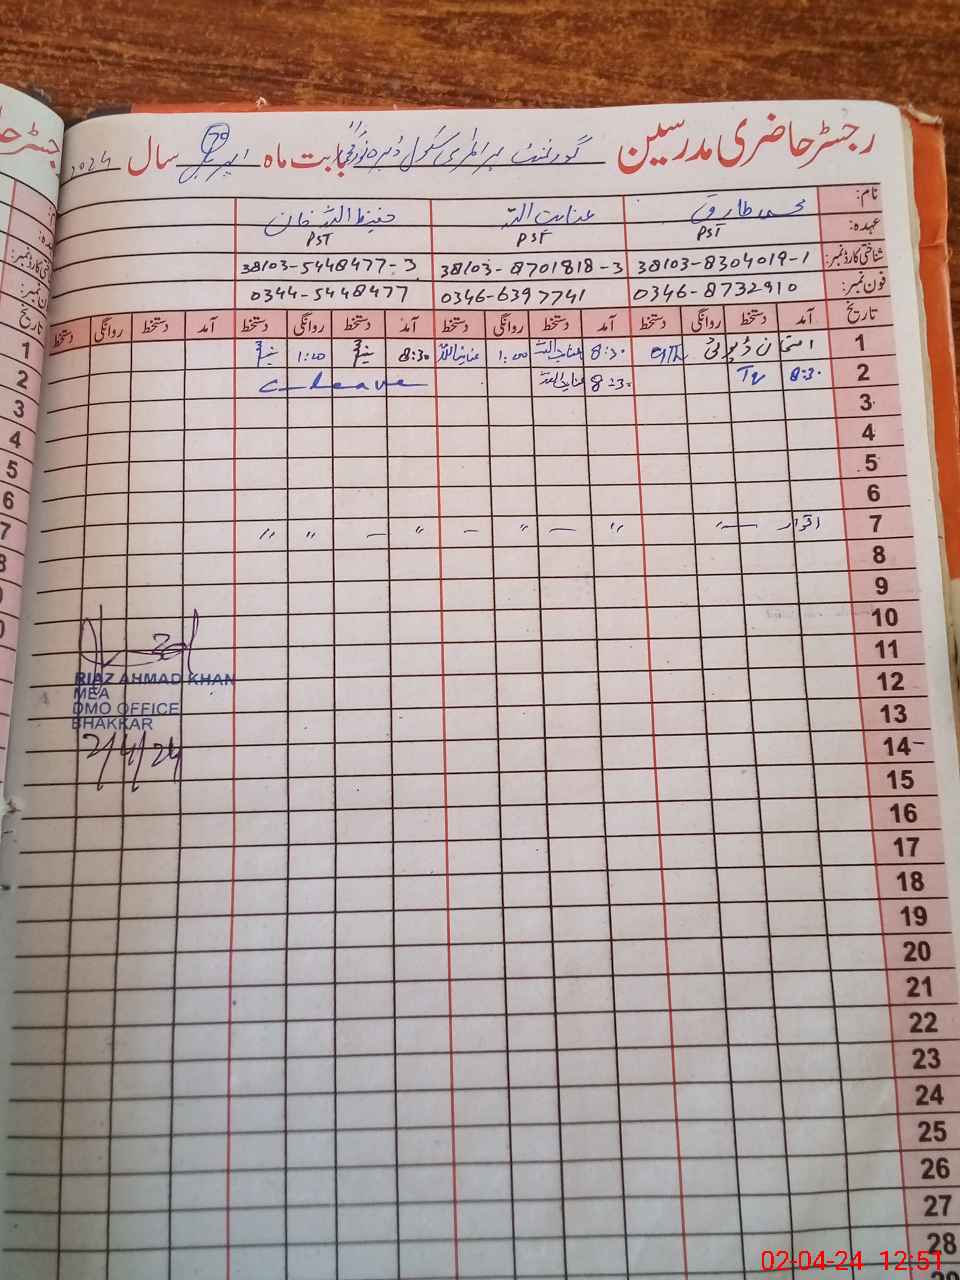 رجسٹر حاضری مدرسین گورنمنٹ پرائمری سکول ڈیرہ بابت ماہ اپریل سال 2024
نام: محمد طارق عنایت اللہ حفیظ اللہ خان
عہدہ: PST PST PST
شناختی کارڈ نمبر: 38103-8304019-1 38103-8701818-3 38103-5448477-3
فون نمبر: 0346-8732910 0346-6397741 0344-5448477
تاریخ آمد دستخط روانگی دستخط آمد دستخط روانگی دستخط آمد دستخط روانگی دستخط آمد دستخط روانگی دستخط
1 امتحان ڈیوٹی 8:30 عنایت اللہ 1:00 عنایت اللہ 8:30 1:00
2 8:30 8:30 عنایت اللہ C-Leave
3
4
5
6
7 اتوار — " — " — " — " "
8
9
10
11
12
13
14
15
16
17
18
19
20
21
22
23
24
25
26
27
28
RIAZ AHMAD KHAN
MEA
DMO OFFICE
BHAKKAR
2/4/24
02-04-24 12:51